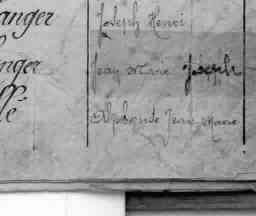 anger Joseph Henri
nger Jean Marie Joseph
é Alphonse Jean Marie